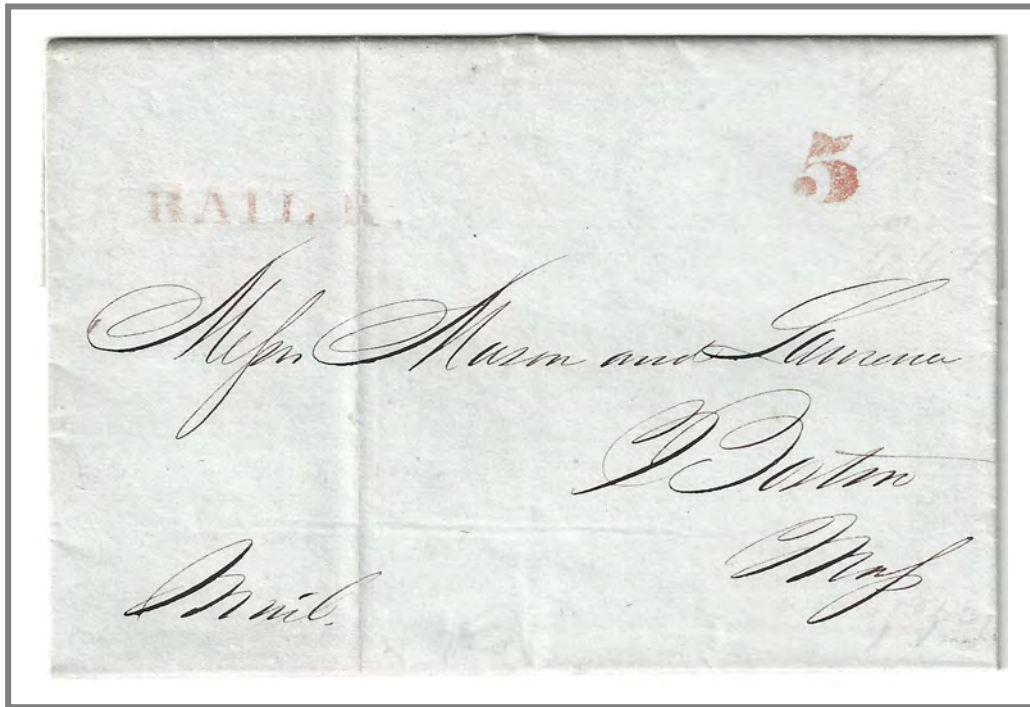 5
RAIL R.
Messrs Mason and Lawrence
Boston
Mass
Mail.